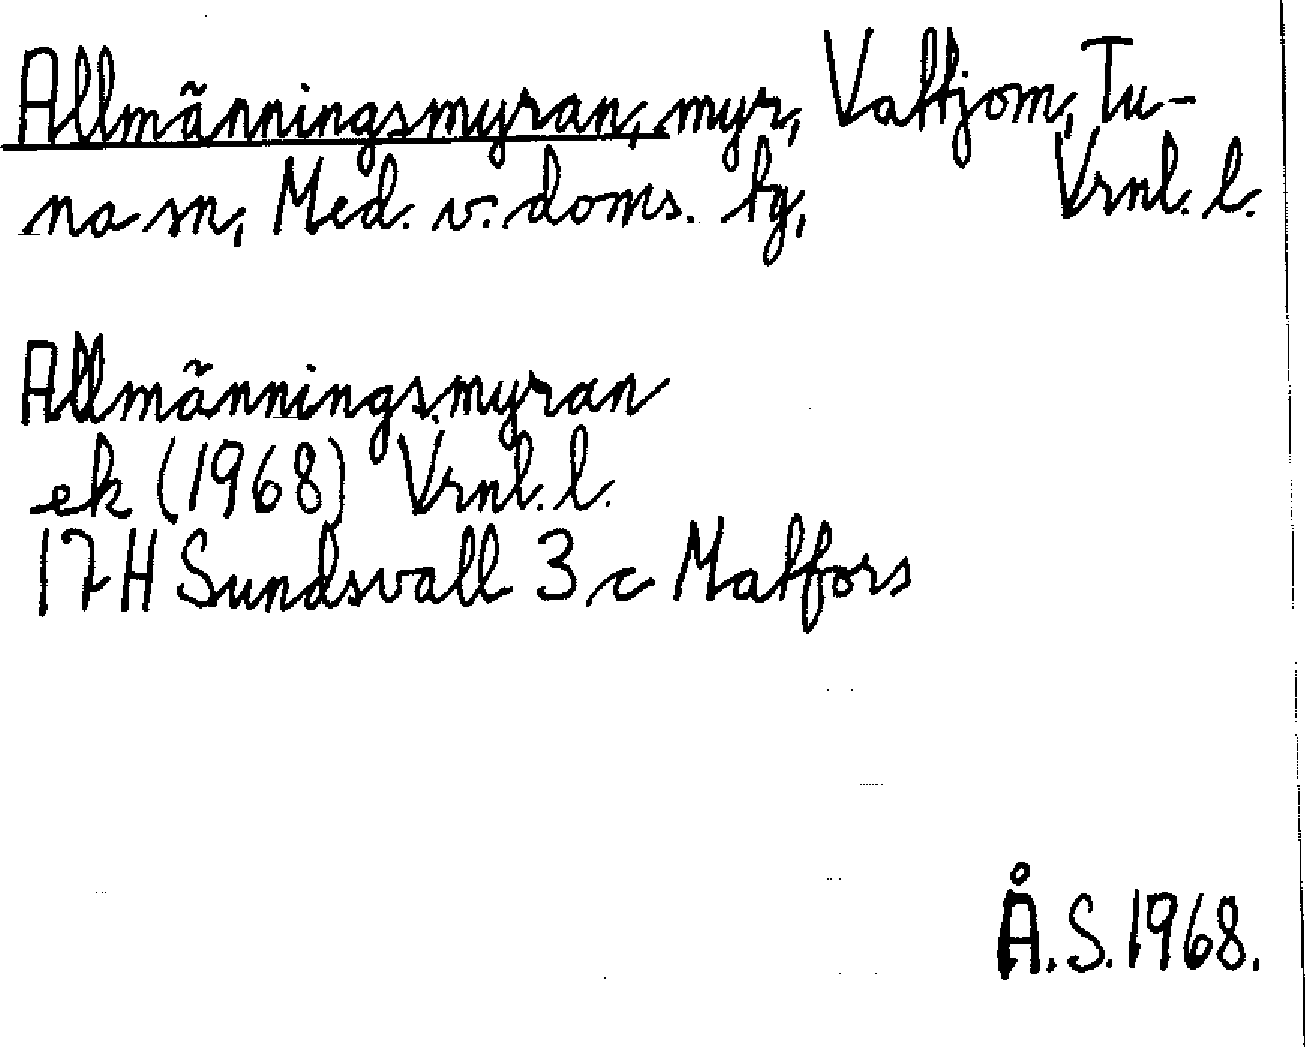 Allmänningsmyran, myr, Vattjom, Tu-
na sn, Med. v. doms. tg, Vrnl. l.
Allmänningsmyran
ek (1968) Vrnl. l.
17H Sundsvall 3 c Matfors
Å.S. 1968.